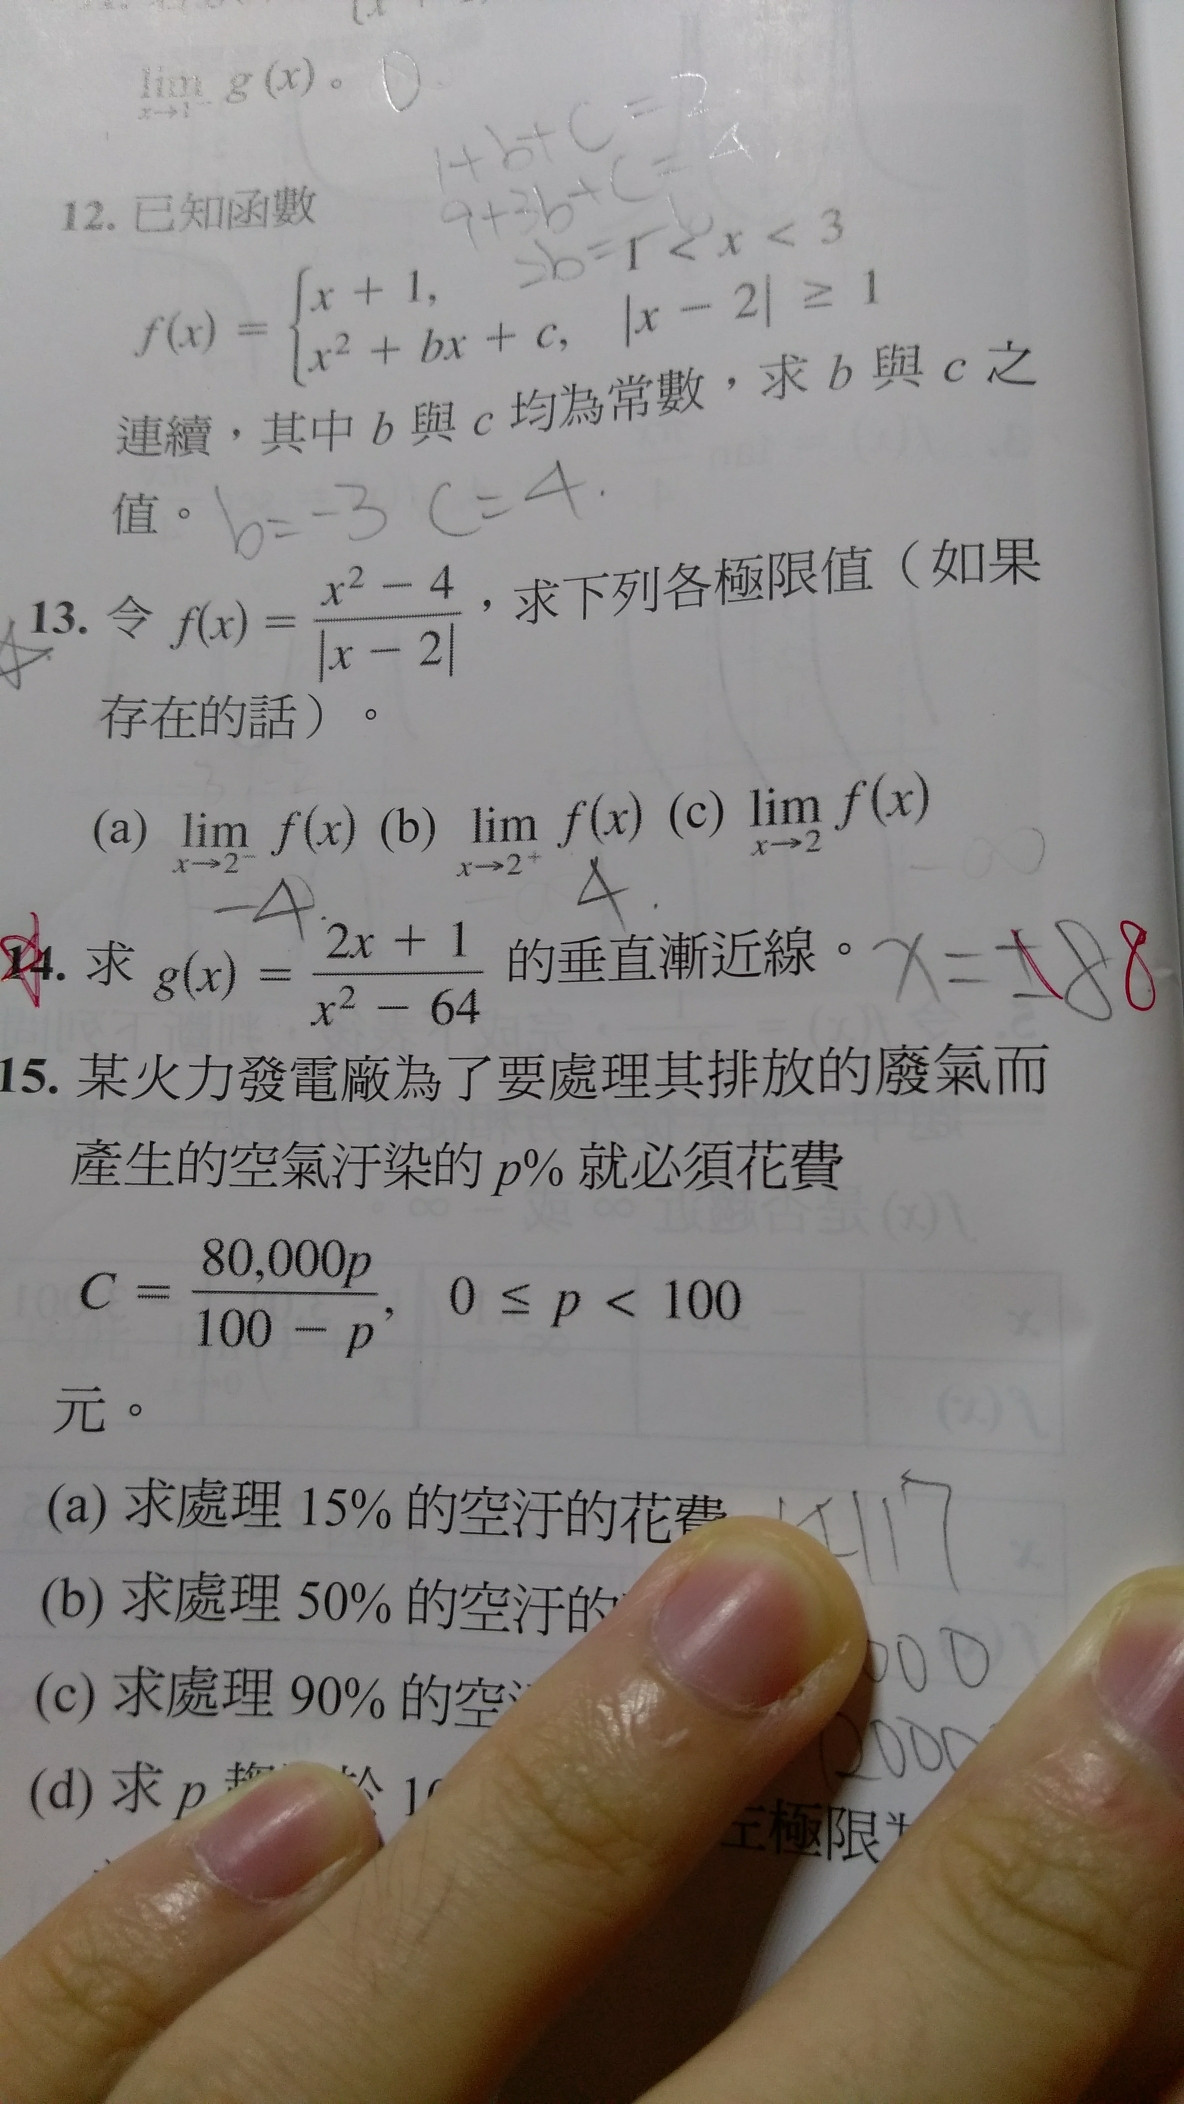 lim g(x)。 0
x→1⁻
1+b+c=2
9+3b+c=4
12. 已知函數
f(x) = { x + 1, 1 < x < 3
x² + bx + c, |x − 2| ≥ 1
連續，其中 b 與 c 均為常數，求 b 與 c 之
值。 b=-3 c=4.
13. 令 f(x) = (x² − 4)/|x − 2|，求下列各極限值（如果
存在的話）。
(a) lim f(x) (b) lim f(x) (c) lim f(x)
x→2⁻ x→2⁺ x→2
-4. 4.
14. 求 g(x) = (2x + 1)/(x² − 64) 的垂直漸近線。 x=
15. 某火力發電廠為了要處理其排放的廢氣而
產生的空氣汙染的 p% 就必須花費
C = 80,000p/(100 − p), 0 ≤ p < 100
元。
(a) 求處理 15% 的空汙的花費 14117
(b) 求處理 50% 的空汙的 000
(c) 求處理 90% 的空 2000
(d) 求 p 於 極限